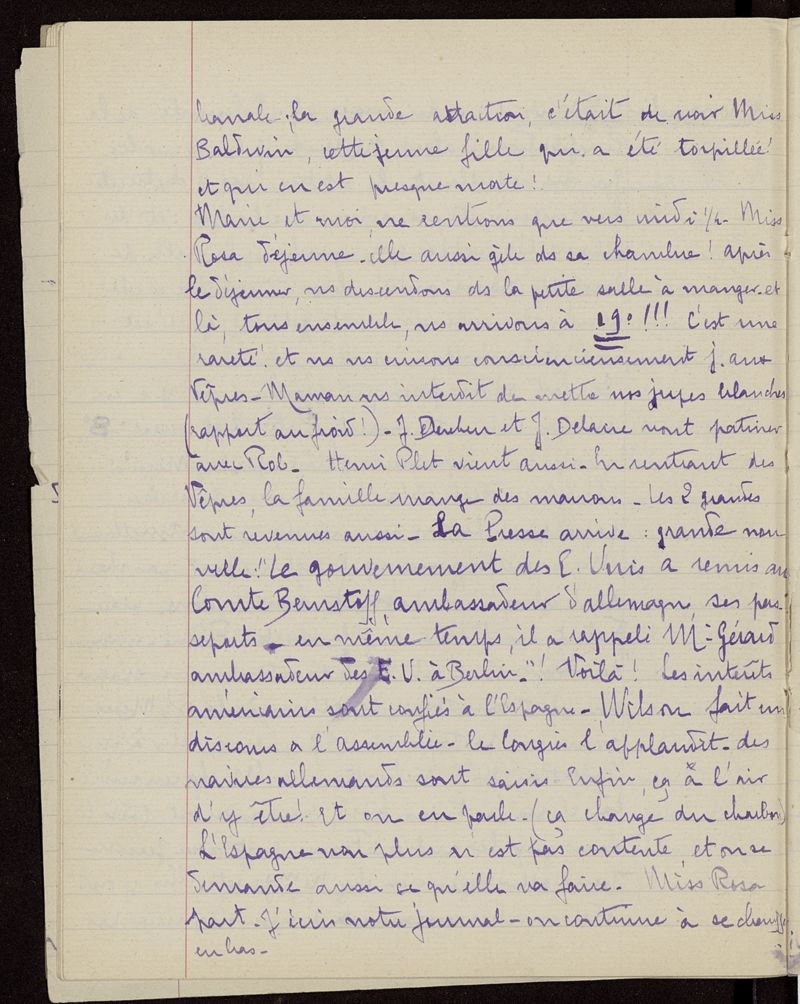 banale ; la grande attraction, c'était de voir Miss
Baldwin, cette jeune fille qui a été torpillée !
et qui en est presque morte !
Marie et moi, ne rentrons que vers midi 1/2 - Miss
Rosa déjeune - elle aussi gèle ds sa chambre ! après
le déjeuner, ns descendons ds la petite salle à manger - et
là, tous ensemble, ns arrivons à 19° !!! C'est une
rareté ! et ns ns cuisons consciencieusement j. aux
Vêpres - Maman ns interdit de mettre nos jupes blanches
(rapport au froid !) - J. et J. Delacre vont patiner
avec Rob - Henri Plet vient aussi - En rentrant des
Vêpres, la famille mange des marrons - Les 2 grandes
sont revenues aussi - La Presse arrive : grande nou-
velle : "Le gouvernement des E. Unis a remis au
Comte Bernstoff, ambassadeur d'allemagne, ses pas-
seports - en même temps, il a rappelé Mr Gérard
ambassadeur des E. U. à Berlin -" ! Voilà ! Les intérêts
américains sont confiés à l'Espagne - Wilson fait un
discours a l'assemblée - le Congrès l'applaudit - des
navires allemands sont saisis Enfin, ça a l'air
d'y être ! Et on en parle - (ça change du charbon)
L'Espagne non plus n'est pas contente, et on se
demande aussi ce qu'elle va faire - Miss Rosa
part - J'écris notre journal - on continue à se chauffer
en bas -